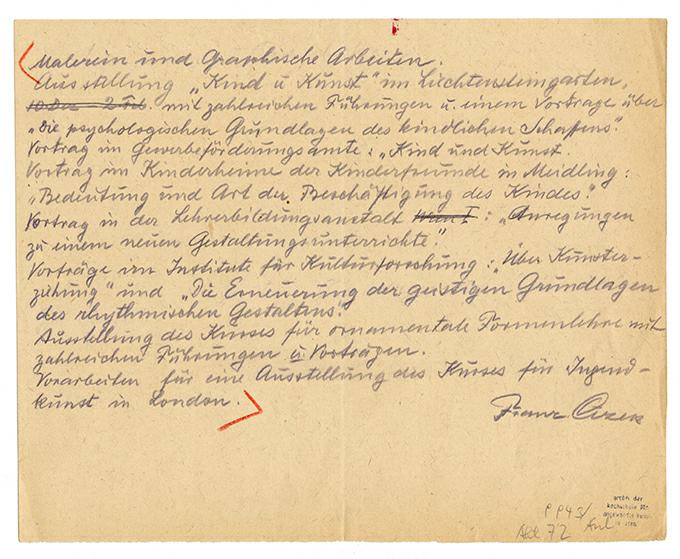 Malerein und Graphische Arbeiten.
Ausstellung „Kind u Kunst" im Liechtensteingarten,
mit zahlreichen Führungen u. einem Vortrage über
„Die psychologischen Grundlagen des kindlichen Schaffens".
Vortrag im Gewerbeförderungsamte: „Kind und Kunst.
Vortrag im Kinderheime der Kinderfreunde in Meidling:
„Bedeutung und Art der Beschäftigung des Kindes".
Vortrag in der Lehrerbildungsanstalt : „Anregungen
zu einem neuen Gestaltungsunterrichte".
Vorträge im Institute für Kulturforschung: „Über Kunster-
ziehung" und „Die Erneuerung der geistigen Grundlagen
des rhythmischen Gestaltens".
Ausstellung des Kurses für ornamentale Formenlehre mit
zahlreichen Führungen u Vorträgen.
Vorarbeiten für eine Ausstellung des Kurses für Jugend-
kunst in London.
Franz Cizek
PP43/
72